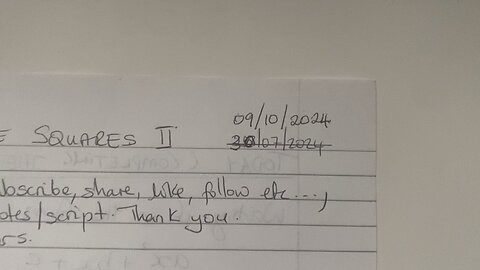 09/10/2024
E SQUARES II 30/07/2024
bscribe, share, like, follow etc...,
otes/script. Thank you.
rs.